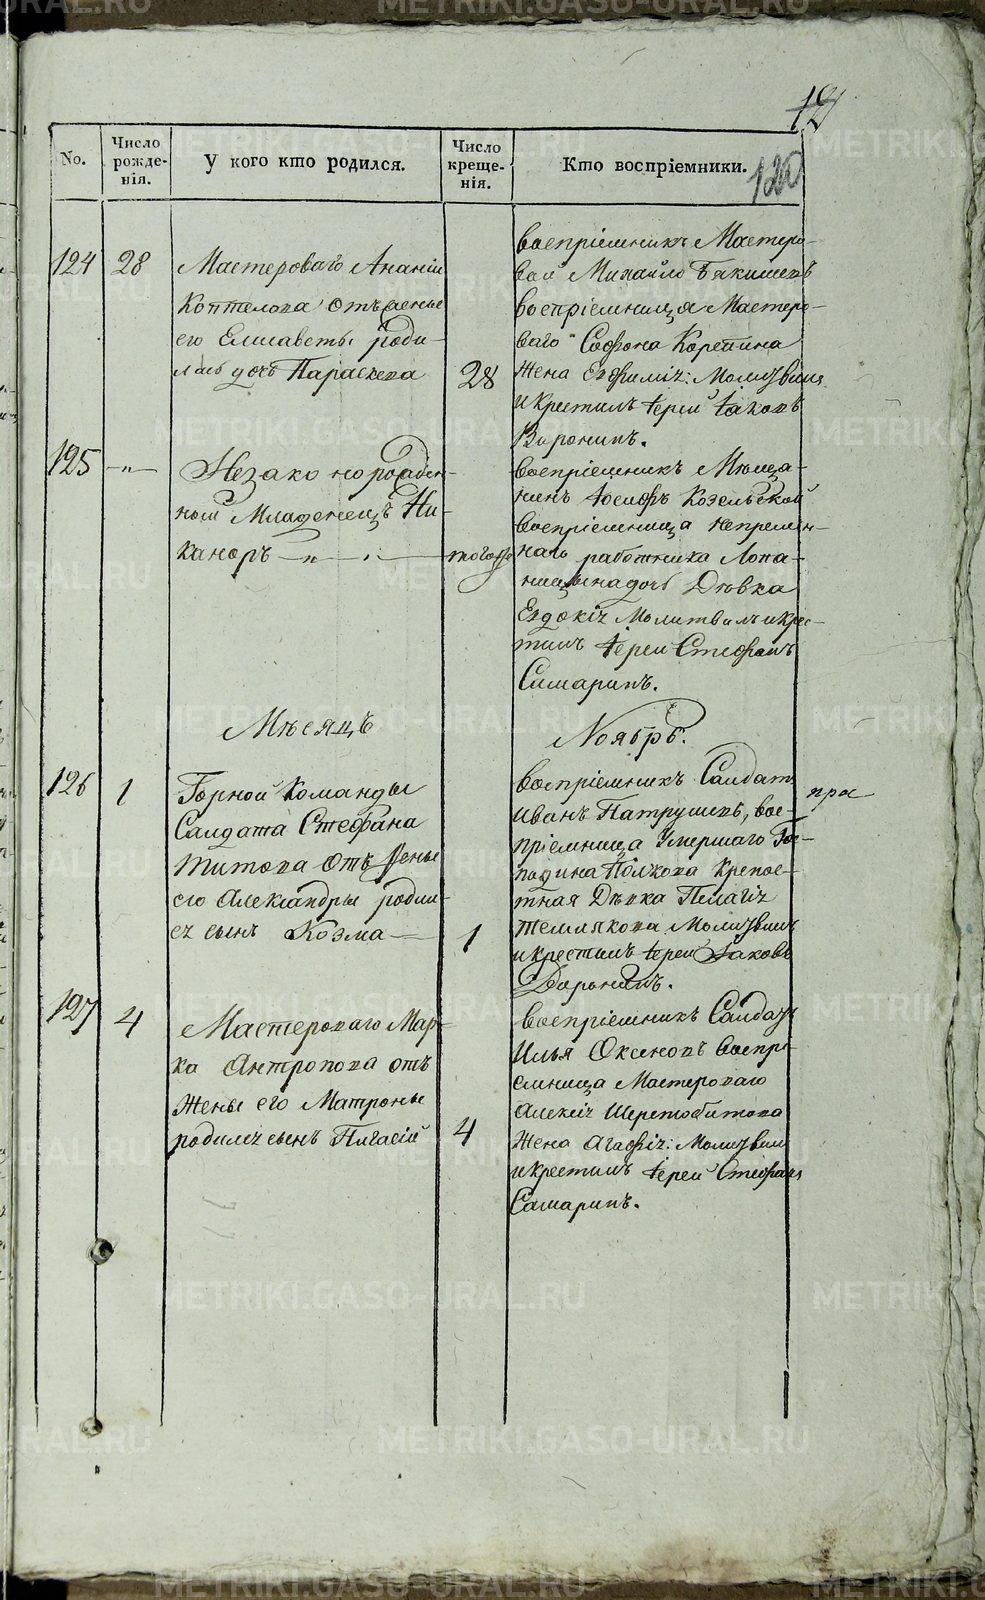 121
120
No.
Число рожде-нія.
У кого кто родился.
Число креще-нія.
Кто воспріемники.
124
28
Мастероваго Ананіи
Коптелова отъ жены
его Елисаветы роди-
лась дочь Параскева
28
воспріемникъ Мастеро-
вой Михайло
воспріемница Мастеро-
ваго Софона Корепина
жена Евфимія: Молитвилъ
и крестилъ Іерей Іаковъ
Воронинъ.
125
—"—
Незаконорожден-
ной Младенецъ Ни-
каноръ — " — . —
тогоже
воспріемникъ Мѣща-
нинъ Іосифъ Козельской
воспріемница непремѣн-
наго работника Лопа-
ницына дочь Дѣвка
Евдокія Молитвилъ и крес-
тилъ Іерей Стефанъ
Самаринъ.
Мѣсяцъ
Ноябрь.
126
1
Горной Команды
Салдата Стефана
Титова отъ жены
его Александры родил-
ся сынъ Козма —
1
воспріемникъ Салдатъ
Иванъ Патрушевъ, вос-
пріемница умершаго Гос-
подина Полкова Крепос-
тная Дѣвка Пелагія
Темлякова Молитвилъ
и крестилъ Іерей Іаковъ
Воронинъ.
127
4
Мастероваго Мар-
ка Антропова отъ
жены его Матроны
родился сынъ Пигасій
4
воспріемникъ Салдатъ
Илья Оксеновъ воспрі-
емница Мастероваго
Алексія Шерстобитова
жена Агафія: Молитвилъ
и крестилъ Іерей Стефанъ
Самаринъ.
METRIKI.GASO-URAL.RU